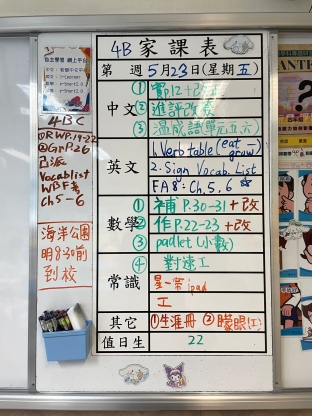 4B 家課表
第 週 5月23日(星期五)
中文
① 實P.12+改
② 進評改處
③ 溫成語單元五六
英文
1. Verb table (eat grow)
2. Sign Vocab. List
FA8: Ch.5, 6 ☆
數學
① 補 P.30-31 + 改
② 作 P.22-23 + 改
③ padlet (小數)
④ 對速工
常識
ipad
工
其它
①生涯冊 ②矇眼(工)
值日生
22
自主學習 網上平台
4BC
①RWP.19-22
②GrP.26
已派
Vocablist
Ch5-6
海洋公園
明8:30前
到校